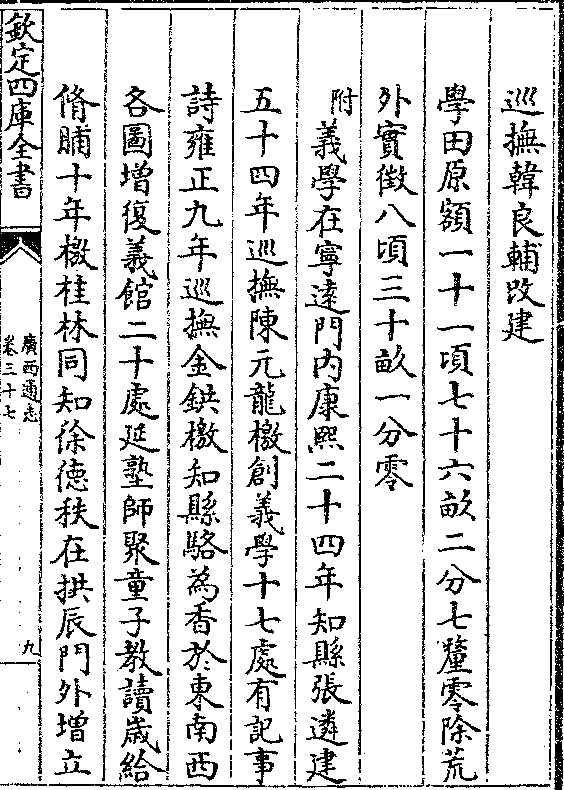 巡撫韓良輔改建
學田原額一十一頃七十六畝二分七釐零除荒
外實徵八頃三十畝一分零
附義學在寧遠門內康熙二十四年知縣張遴建
五十四年巡撫陳元龍檄創義學十七處有記事
詩雍正九年巡撫金鉷檄知縣駱為香於東南西
各圖增復義館二十處延塾師聚童子教讀歲給
脩脯十年檄桂林同知徐德秩在拱辰門外增立
欽定四庫全書
廣西通志
卷三十七
九